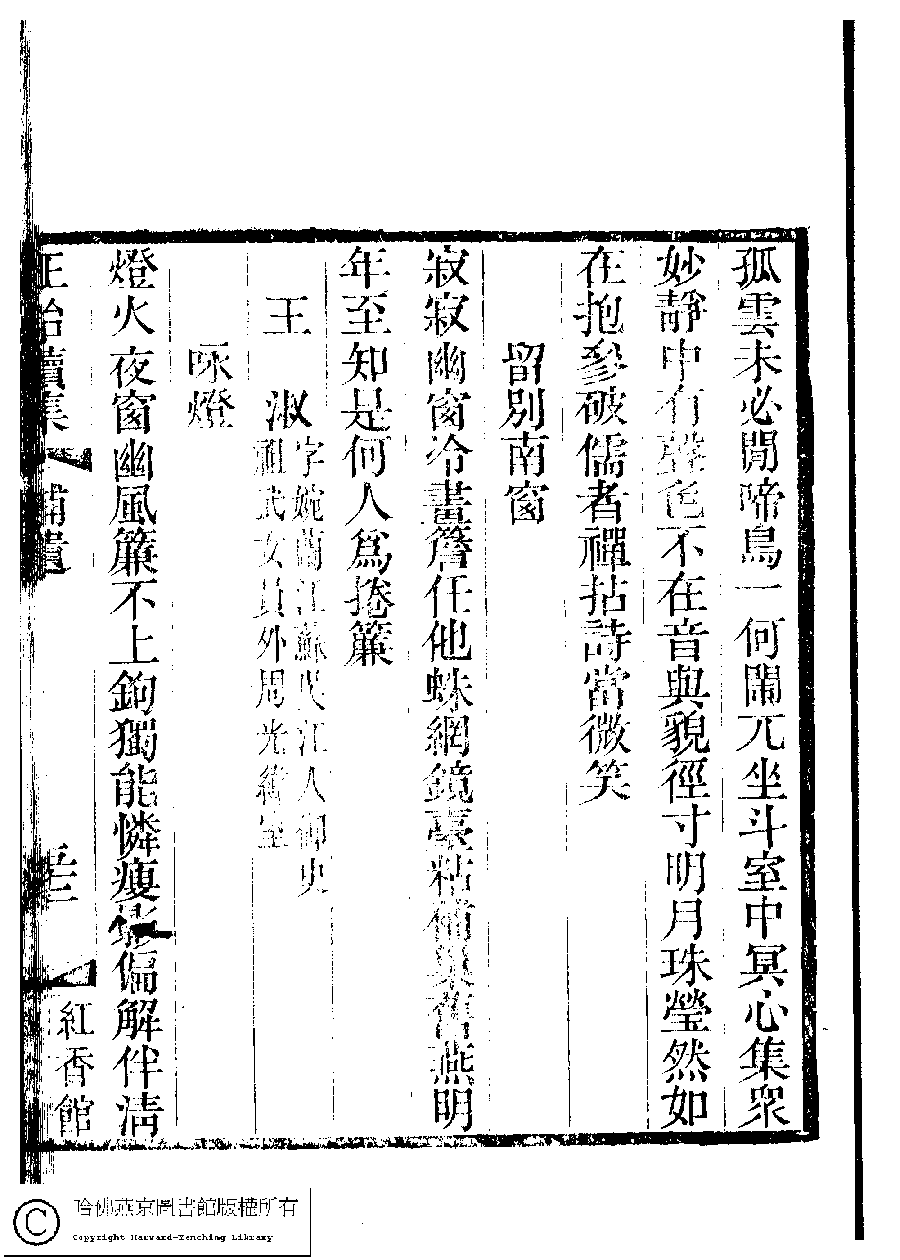 孤雲未必閒啼鳥一何鬧兀坐斗室中冥心集眾
妙靜中有聲色不在音與貌徑寸明月珠瑩然如
在抱參破儒者禪拈詩當微笑
留別南窗
寂寂幽窗冷畫簷任他蛛網鏡臺粘補巢舊燕明
年至知是何人爲捲簾
王 淑
字婉蘭江蘇吳江人御史
祖武女員外周光緯室
咏燈
燈火夜窗幽風簾不上鉤獨能憐瘦影偏解伴淸
正始續集
補遺
紅香館
哈佛燕京圖書館版權所有
Copyright Harvard-Yenching Library